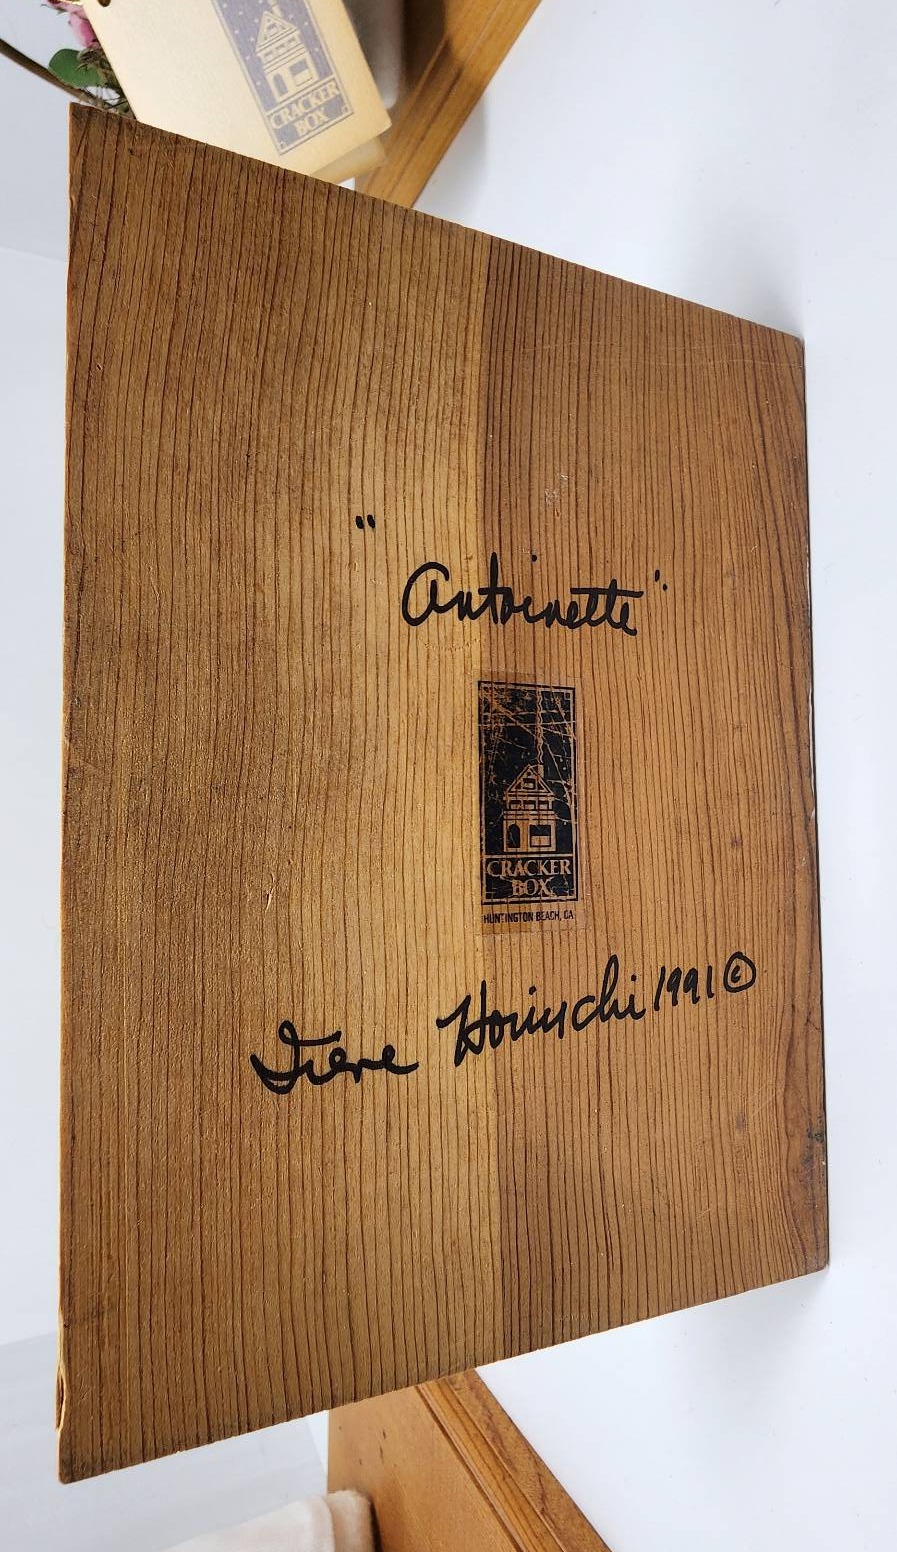 CRACKER
BOX
" Antoinette"
CRACKER
BOX
HUNTINGTON BEACH, CA
Irene Horiuchi 1991 ©